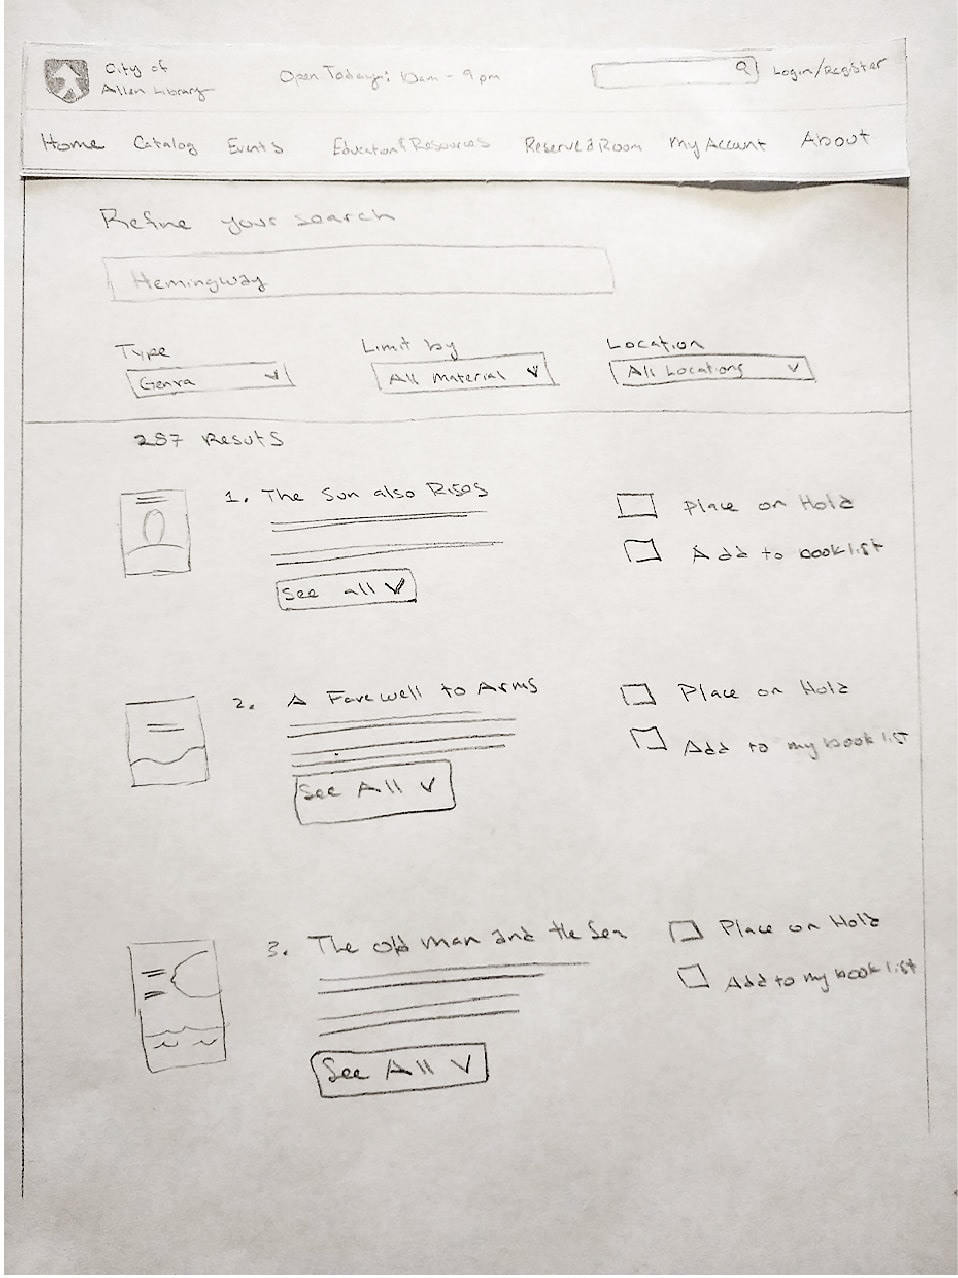 City of
Allen Library
Open Today: 10am - 9pm
Login/Register
Home Catalog Events Educational Resources Reserve a Room My Account About
Refine your search
Hemingway
Type Limit by Location
Genra All Material All Locations
287 Resuts
1. The Sun also Rises
Place on Hold
Add to booklist
See all
2. A Farewell to Arms
Place on Hold
Add to my book list
See All
3. The old man and the Sea
Place on Hold
Add to my book list
See All